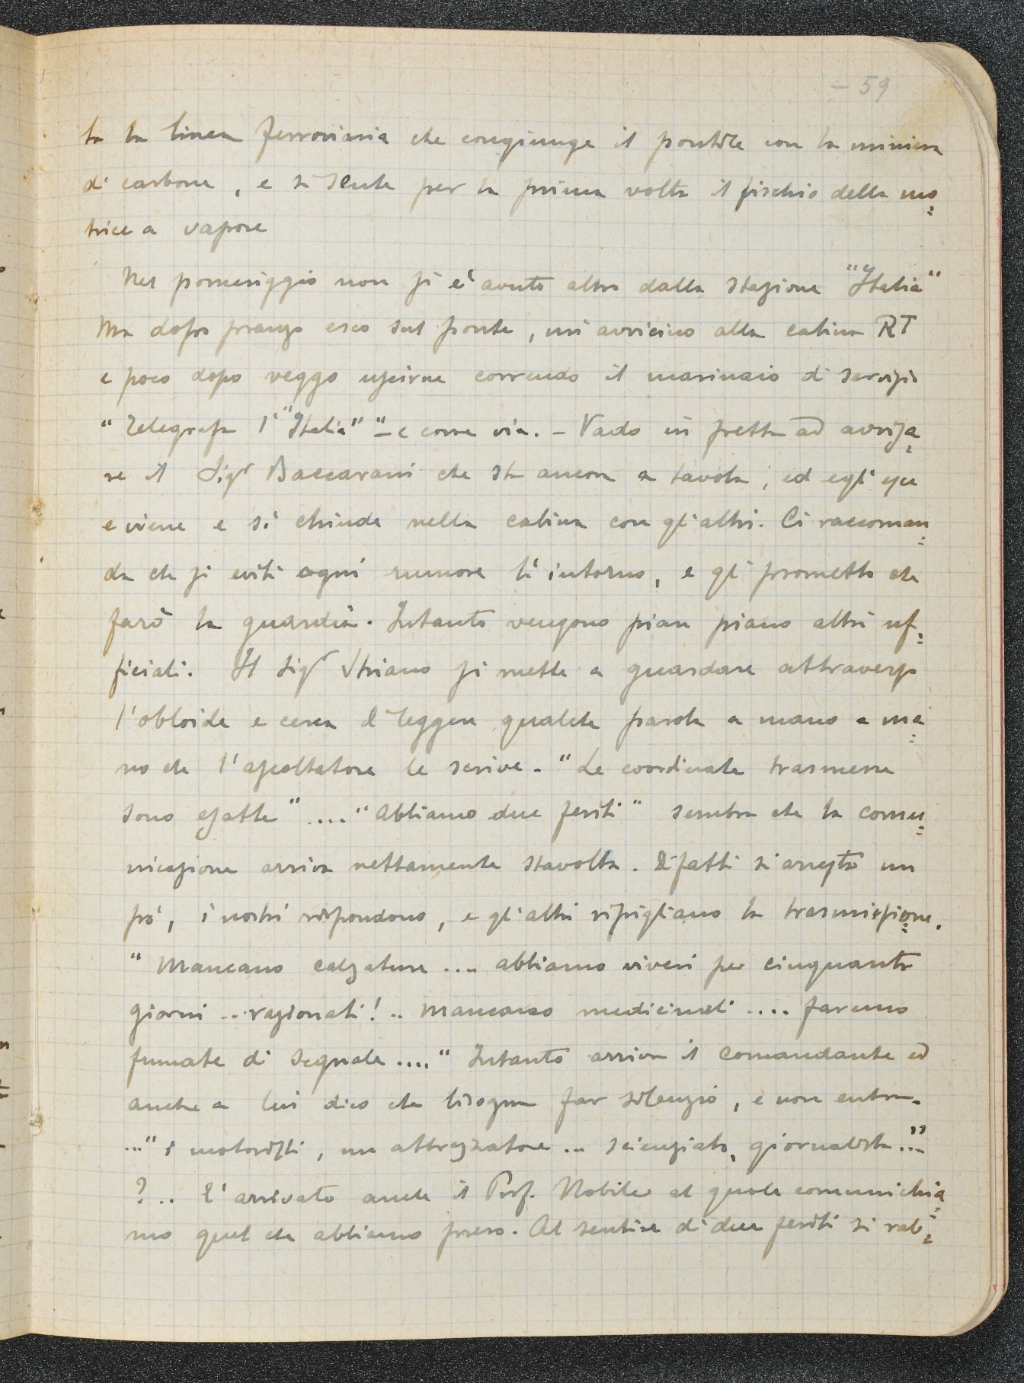 - 59
ta la linea ferroviaria che congiunge il pontile con la miniera
di carbone, e si sente per la prima volta il fischio della mo=
trice a vapore
Nel pomeriggio non si è avuto altro dalla stazione "Italia"
Ma dopo pranzo esco sul ponte, mi avvicino alla cabina RT
e poco dopo veggo uscirne correndo il marinaio di servizio
"Telegrafa l'"Italia" " - e corre via. - Vado in fretta ad avvisa=
re il Sigr Baccarani che sta ancora a tavola, ed egli esce
e viene e si chiude nella cabina con gli altri. Ci raccoman=
da che si eviti ogni rumore lì intorno, e gli prometto che
farò la guardia. Intanto vengono pian piano altri uf=
ficiali. Il Sigr Striano si mette a guardare attraverso
l'obloide e cerca di leggere qualche parola a mano a ma=
no che l'ascoltatore le scrive - "Le coordinate trasmesse
sono esatte" .... "Abbiamo due feriti" sembra che la comu=
nicazione arriva nettamente stavolta. Difatti si arresta un
pò, i nostri rispondono, e gli altri ripigliano la trasmissione.
"Mancano calzature .... abbiamo viveri per cinquanta
giorni .. razionati! .. mancano medicinali .... faremo
fumate di segnale ...." Intanto arriva il comandante ed
anche a lui dico che bisogna far silenzio, e non entra.
..." i motoristi, un attrezzatore ... scienziato, giornalista ..."
? .. È arrivato anche il Prof. Nobile al quale comunichia=
mo quel che abbiamo preso. Al sentire di due feriti si rab=